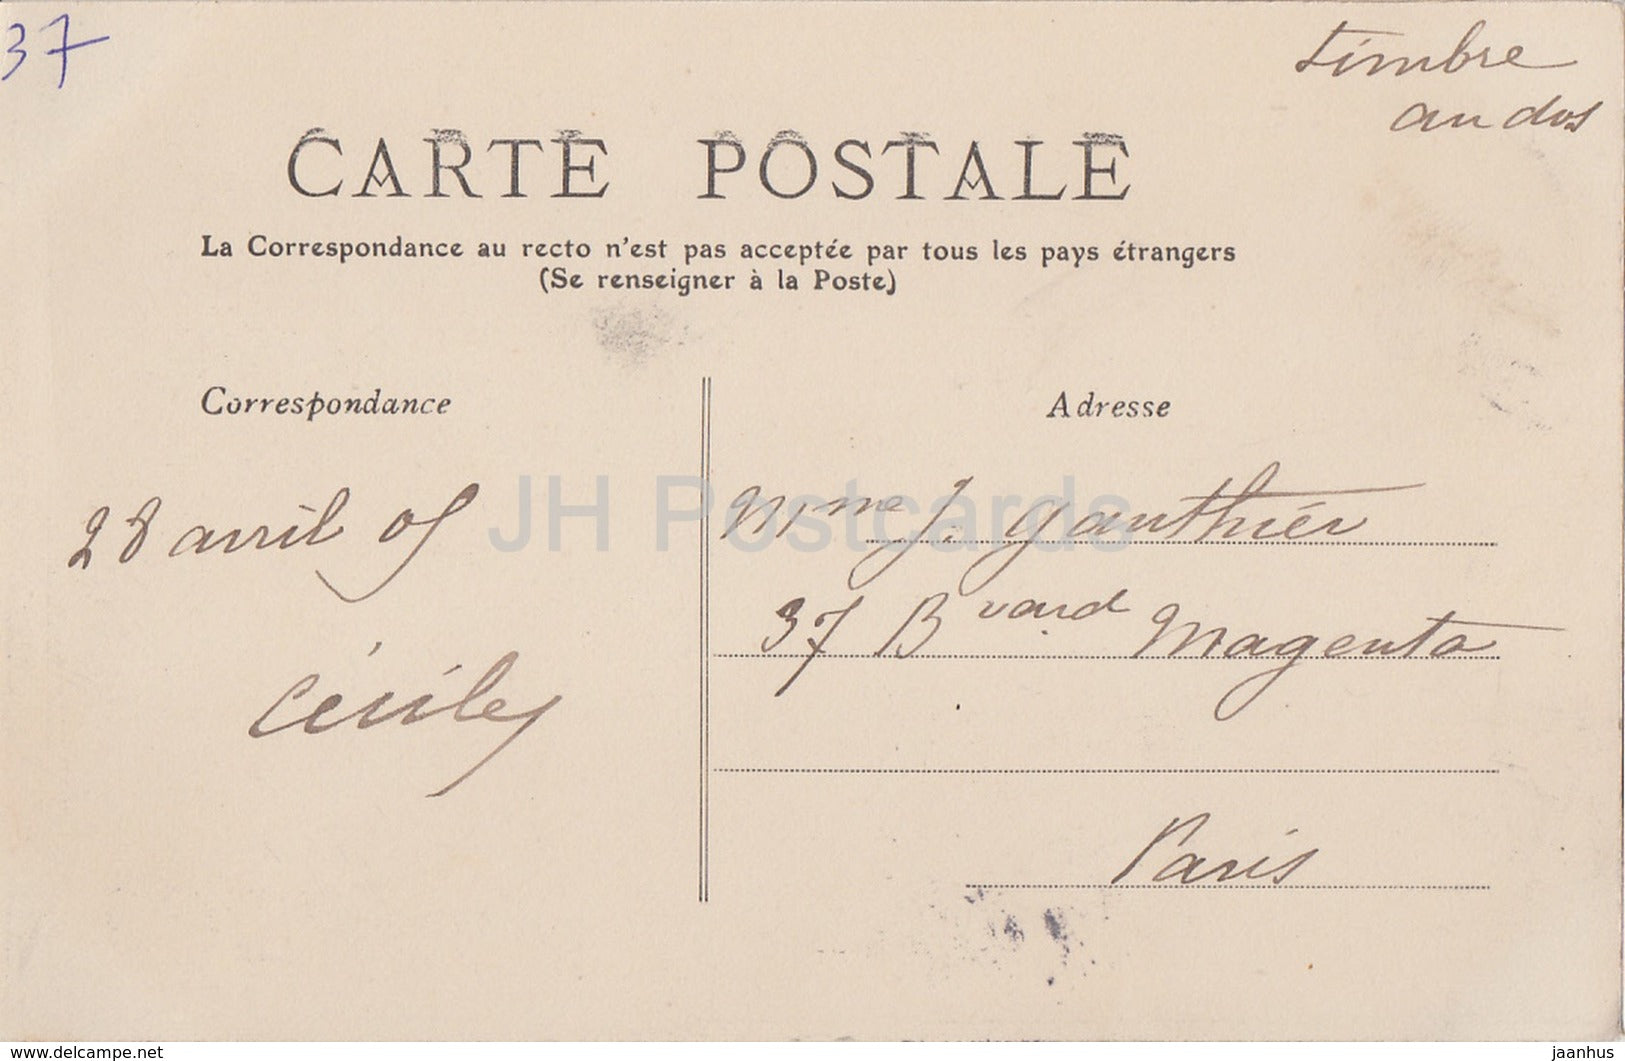 37
timbre
au dos
CARTE POSTALE
La Correspondance au recto n'est pas acceptée par tous les pays étrangers
(Se renseigner à la Poste)
Correspondance
Adresse
28 avril 05
Cécile
Mme J. Gauthier
37 Bvard Magenta
Paris
JH Postcards
www.delcampe.net
jaanhus